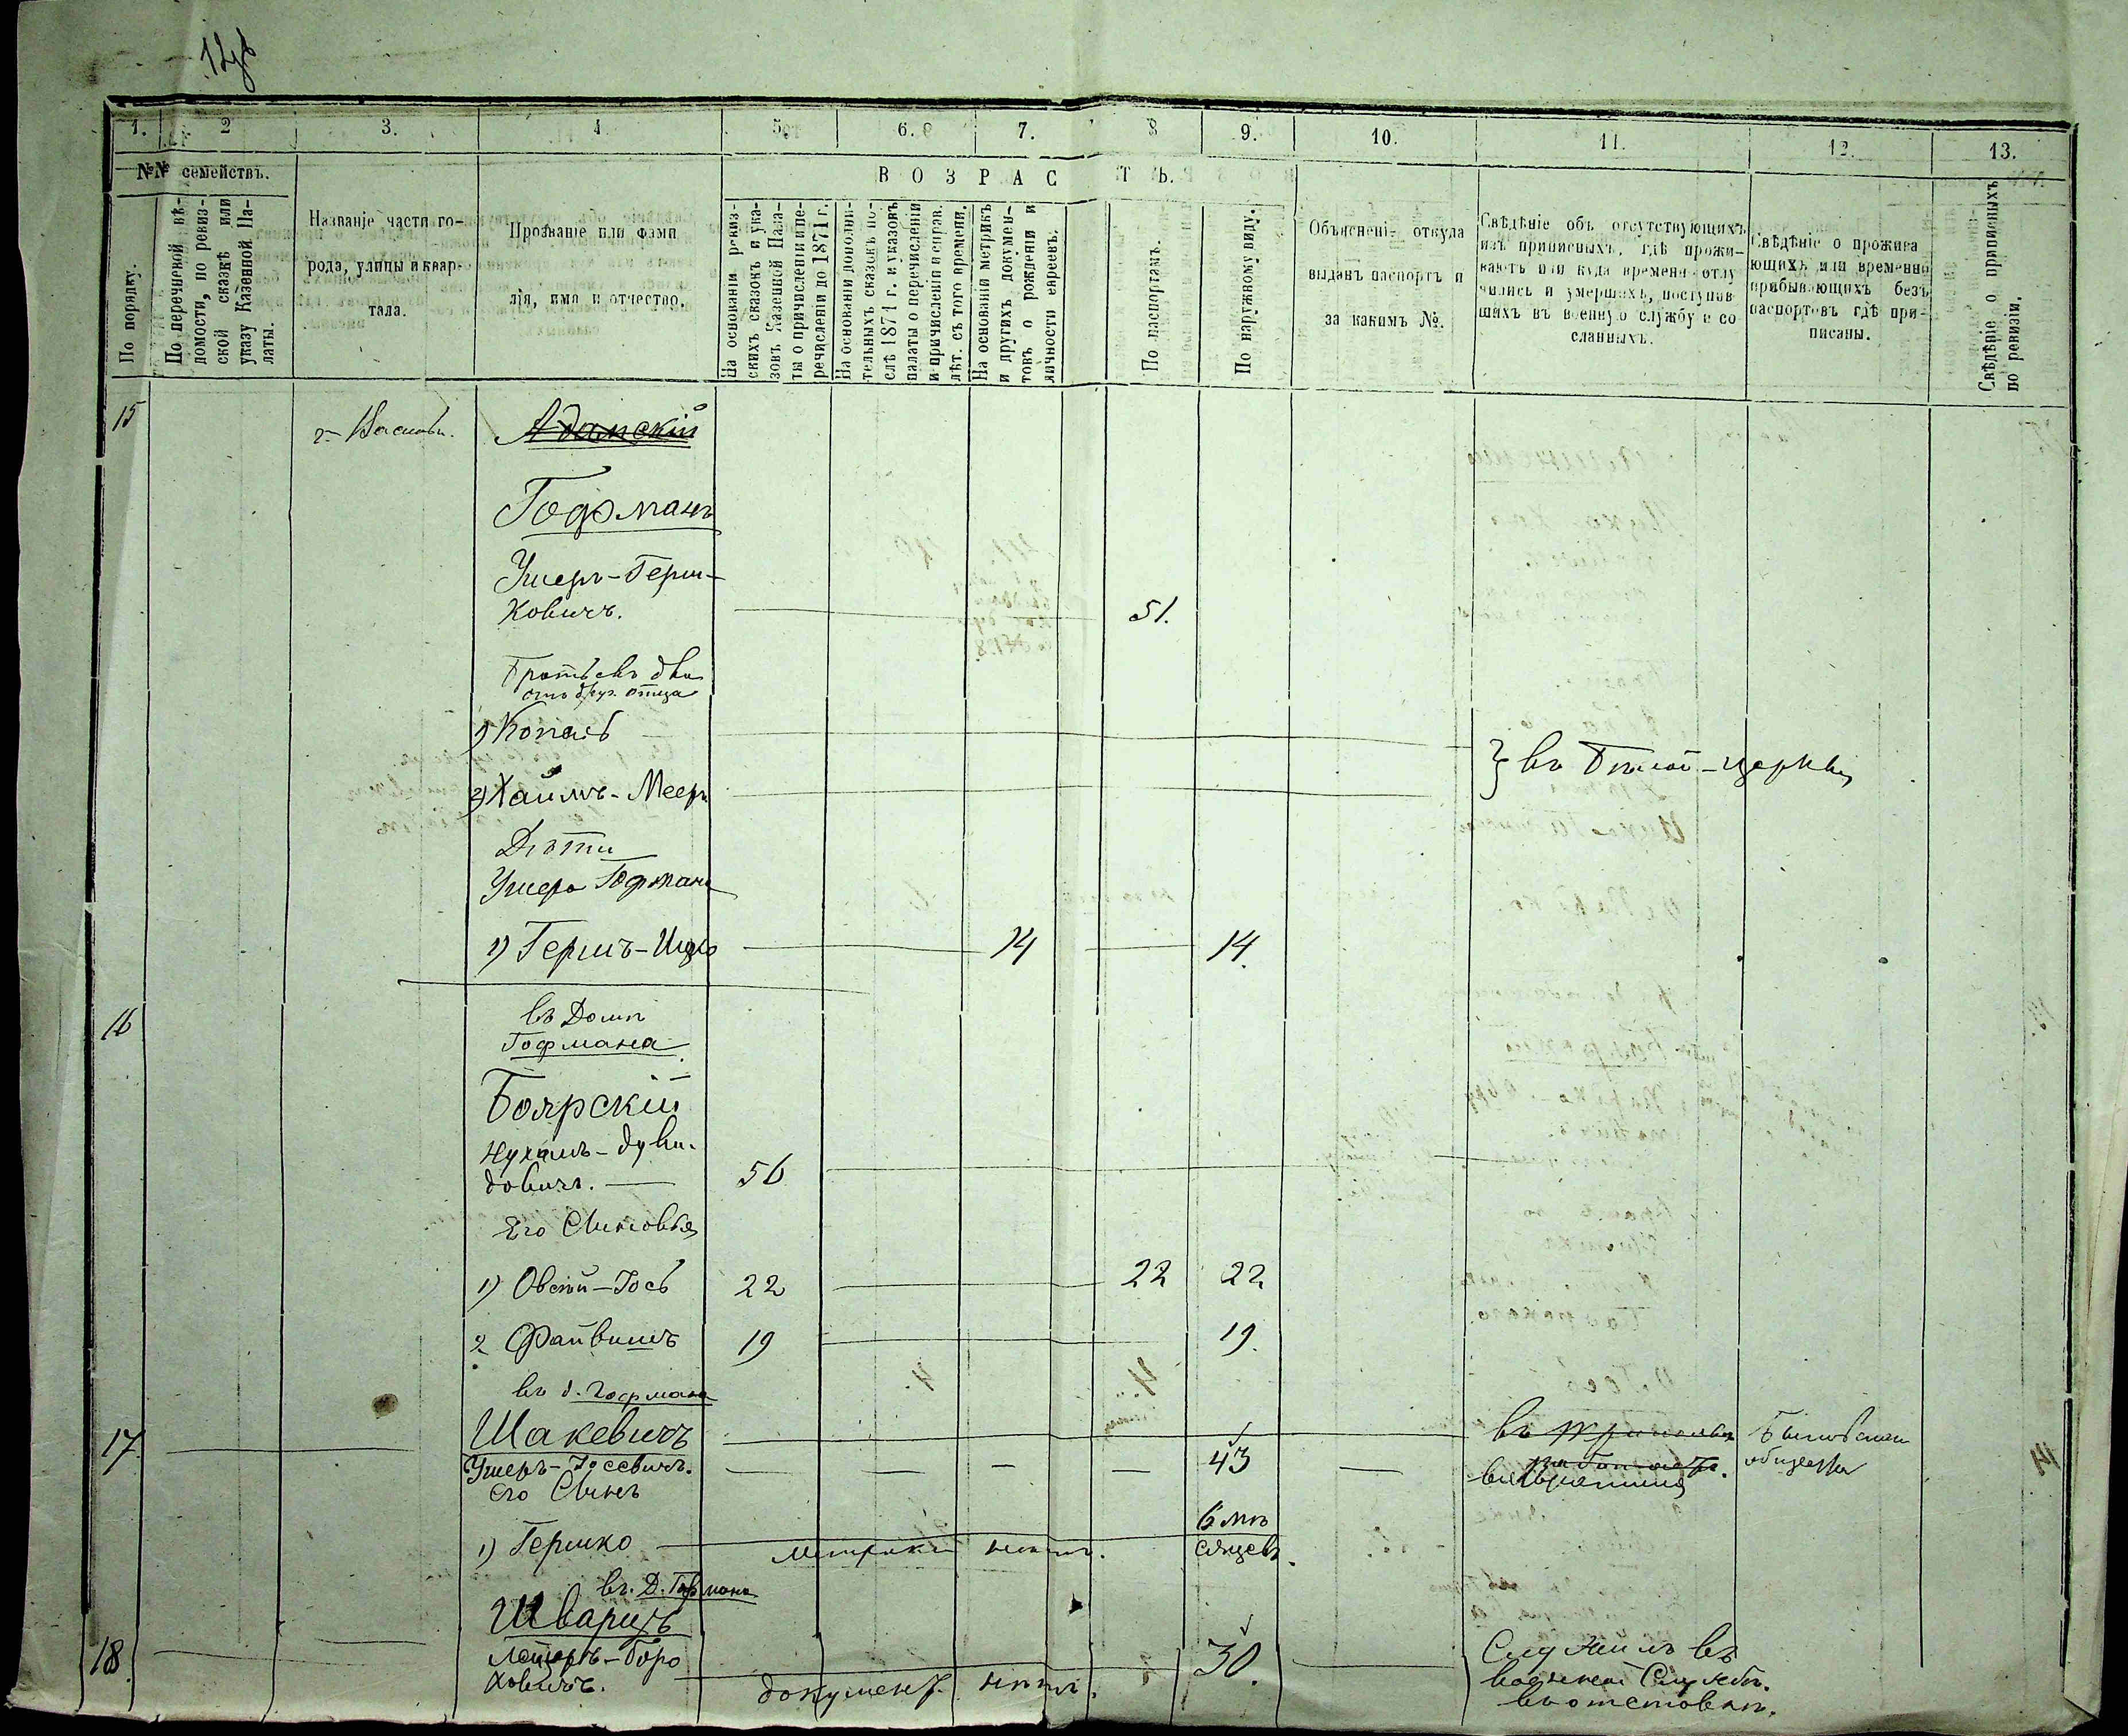 1.
2
3.
4
5.
6.
7.
8
9.
10.
11.
12.
13.
№№ семействъ.
ВОЗРАСТЪ.
По порядку.
По перечневой вѣ-
домости, по ревиз-
ской сказкѣ или
указу Казенной Па-
латы.
Названіе части го-
рода, улицы и квар-
тала.
Прозваніе или фами
лія, имя и отчество.
На основаніи ревиз-
скихъ сказокъ и ука-
зовъ Казенной Пала-
ты о причисленіи и пе-
речисленіи до 1871 г.
На основаніи дополни-
тельныхъ сказокъ по-
слѣ 1871 г. и указовъ
палаты о перечисленіи
и причисленіи и справ.
лѣт. съ того времени.
На основаніи метрикъ
и другихъ докумен-
товъ о рожденіи и
личности евреевъ.
По паспортамъ.
По наружному виду.
Объясненіе откуда
выданъ паспортъ и
за какимъ №.
Свѣдѣніе объ отсутствующихъ
изъ приписныхъ, гдѣ прожи-
ваютъ или куда временно отлу
чились и умершихъ, поступив
шихъ въ военную службу и со
сланныхъ.
Свѣдѣніе о прожива
ющихъ или временно
прибывающихъ безъ
паспортовъ гдѣ при-
писаны.
Свѣдѣніе о приписныхъ
по ревизіи.
15
г. Васильк.
Адамскій
Гофманъ
Ушеръ-Герш-
ковичъ.
51.
Братьевъ два
отъ друг. отца
1) Копель
2) Хаимъ-Мееръ
} въ Бѣлой-церкви
Дѣти
Ушера Гофмана
1) Гершъ-Ицко
14
14.
16
въ Домѣ
Гофмана
Боярскій
Нухимъ-Дуви-
довичъ.
56
Его Сыновья
1) Овсѣй-Іось
22
22
22
2 Файвишъ
19
19.
въ д. Гофмана
17.
Шакевичъ
Ушеръ-Іосевичъ.
43
въ
общества
Его Сынъ
1) Гершко
метрики нѣтъ.
6 мѣ
сяцевъ.
въ. Д. Гофмана
Шварцъ
18.
ковичъ.
документ. нѣтъ.
30.
Служилъ въ
военной Службѣ.